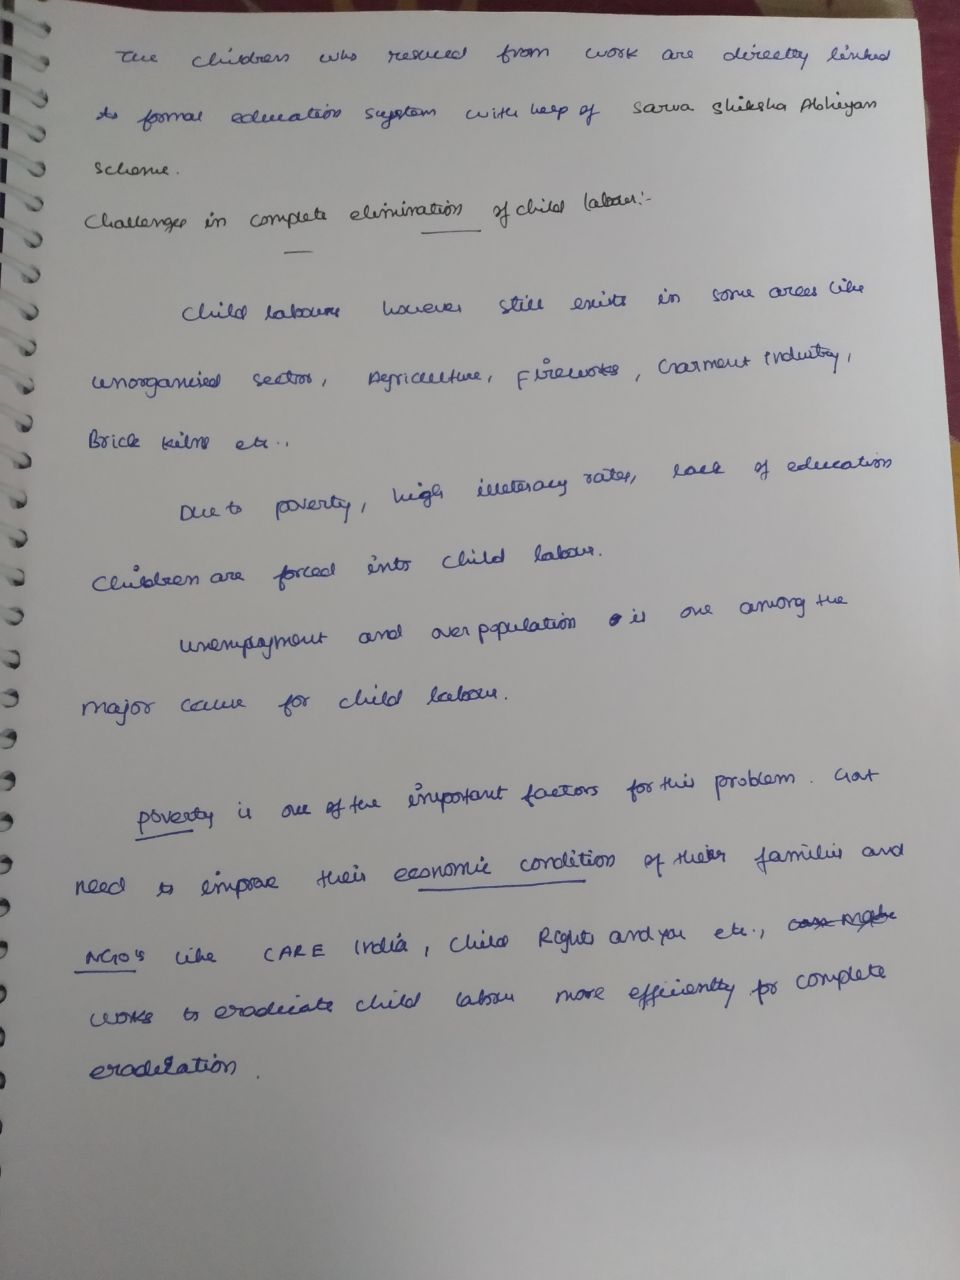 The children who rescued from work are directly linked
to formal education system with help of Sarva Shiksha Abhiyan
scheme.
Challenges in complete elimination of child labour:-
Child labour however still exists in some areas like
unorganised sector, Agriculture, Fireworks, Garment industry,
Brick kilns etc..
Due to poverty, high illiteracy rates, lack of education
children are forced into child labour.
Unemployment and over population is one among the
major cause for child labour.
Poverty is one of the important factors for this problem. Govt
need to improve their economic condition of their families and
NGO's like CARE India, Child Rights and you etc.,
works to eradicate child labour more efficiently for complete
eradication.